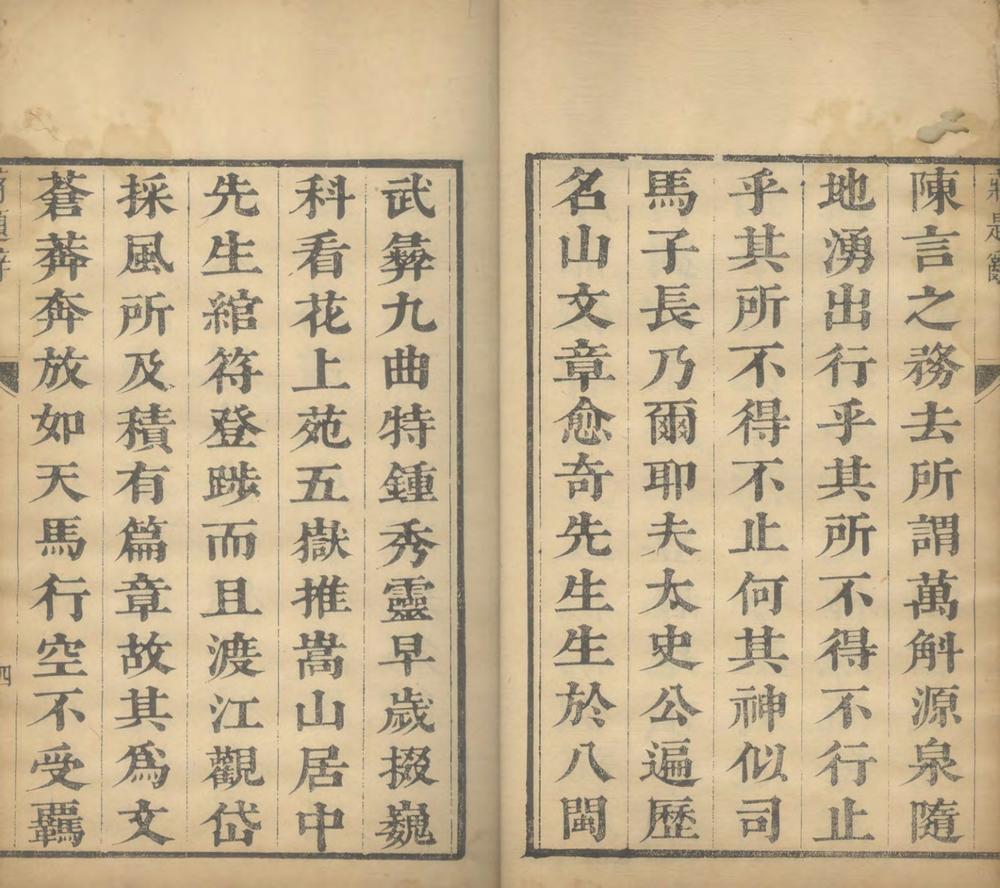 陳言之務去所謂萬斛源泉隨
地湧出行乎其所不得不行止
乎其所不得不止何其神似司
馬子長乃爾耶夫太史公遍歷
名山文章愈奇先生生於八閩
武彝九曲特鍾秀靈早歲掇巍
科看花上苑五嶽推嵩山居中
先生綰符登陟而且渡江觀岱
採風所及積有篇章故其爲文
蒼莽奔放如天馬行空不受羈
四